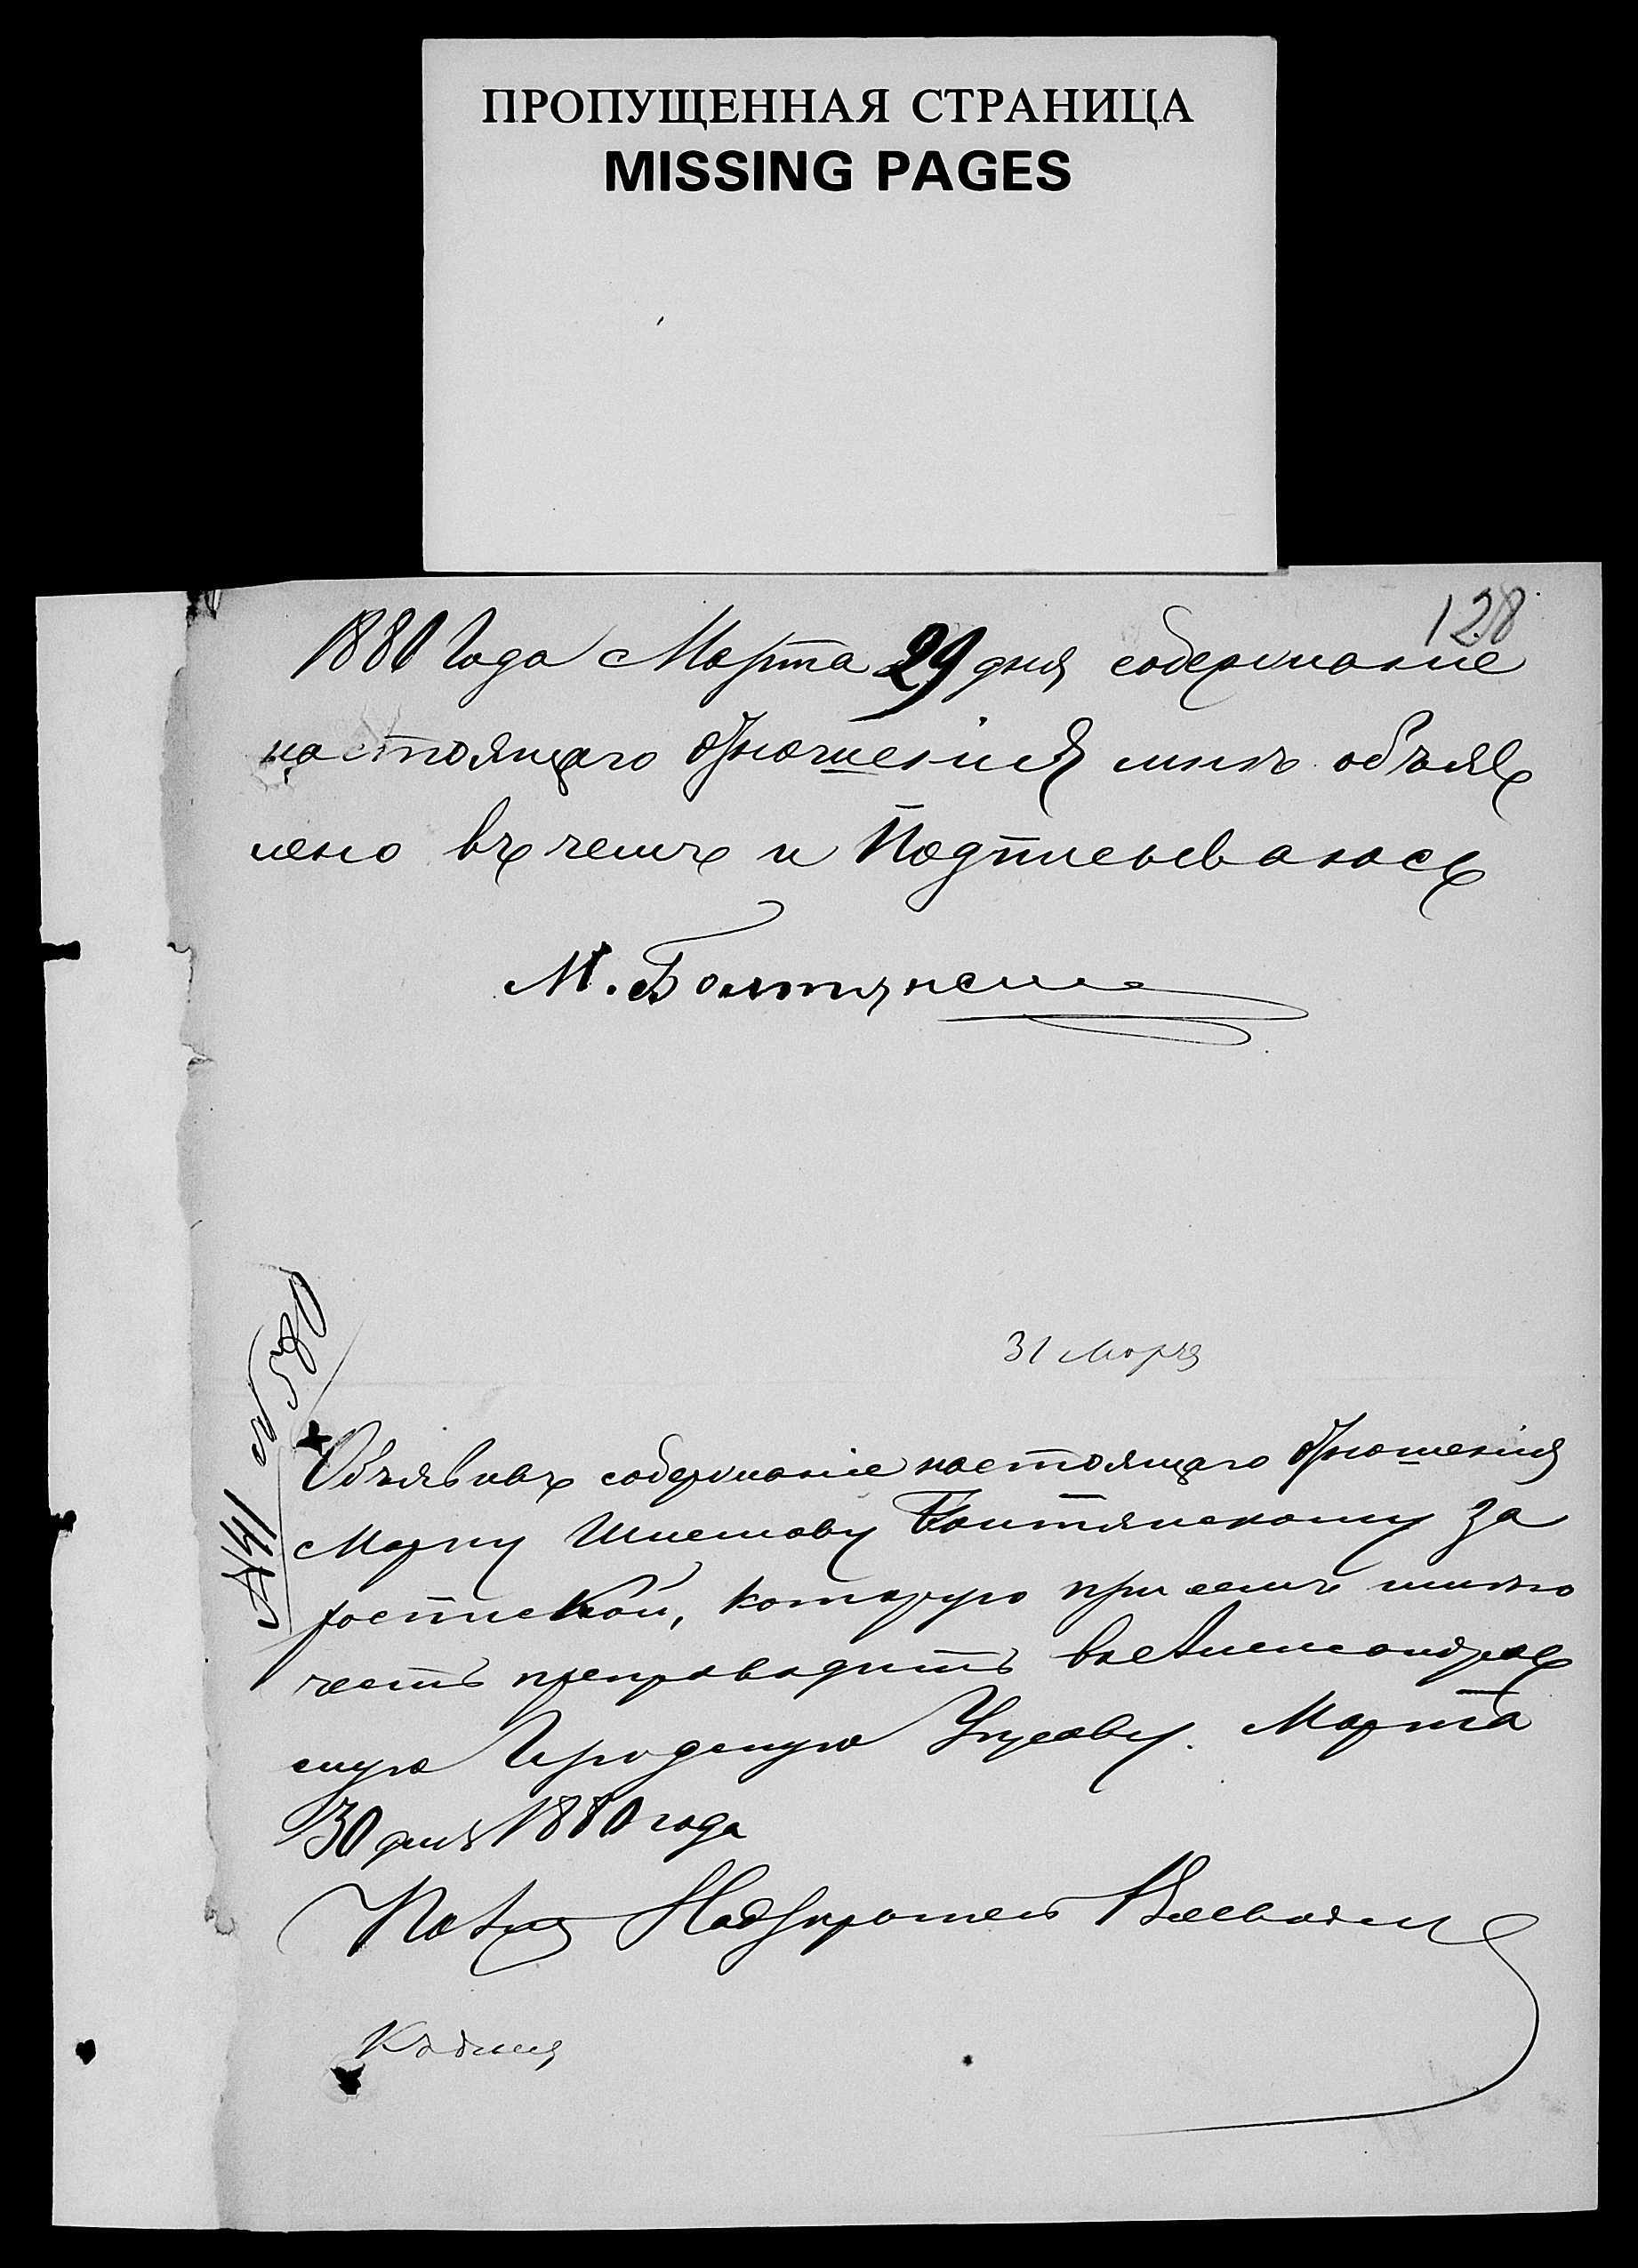 ПРОПУЩЕННАЯ СТРАНИЦА
MISSING PAGES
128
1880 Года Марта 29 дня содержание
настоящаго отношенія мнѣ объяв
лено въ чемъ и Подписываюсь
М. Болтянскій
31 Марта
№ 580
441
Объявивъ содержаніе настоящаго отношенія
Марку Болтянскому за
роспиской, которую при семъ имѣю
честь препроводить въ Александрій
скую Городскую Управу. Марта
30 дня 1880 года
Надзиратель